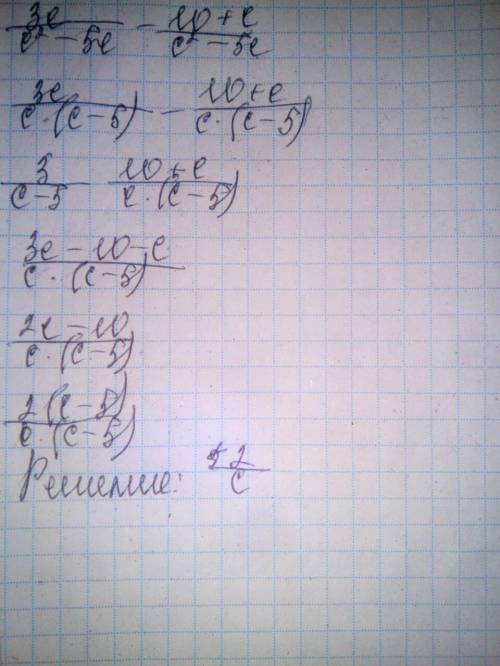 3c/(c² - 5c) - (10+c)/(c² - 5c)
3c/(c·(c-5)) - (10+c)/(c·(c-5))
3/(c-5) - (10+c)/(c·(c-5))
(3c-10-c)/(c·(c-5))
(2c-10)/(c·(c-5))
2(c-5)/(c·(c-5))
Решение: 2/c